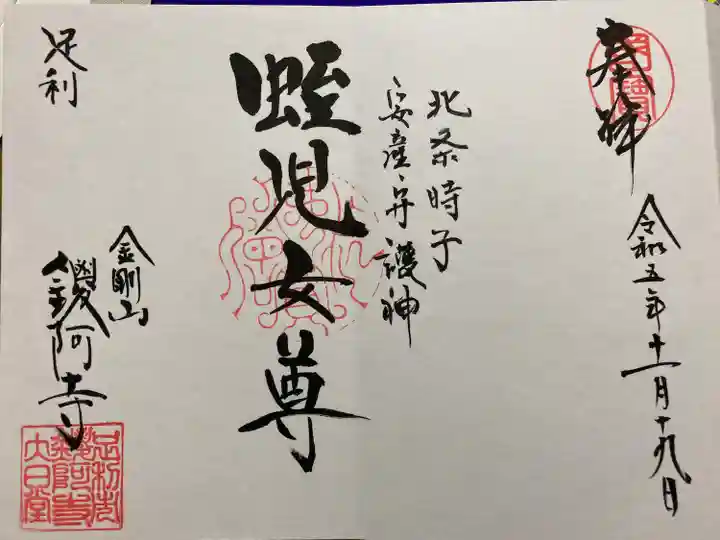 奉拝
令和五年十一月十九日
北条時子
安産弁護神
蛭児女尊
足利
金剛山
鑁阿寺
足利市
鑁阿寺
大日堂